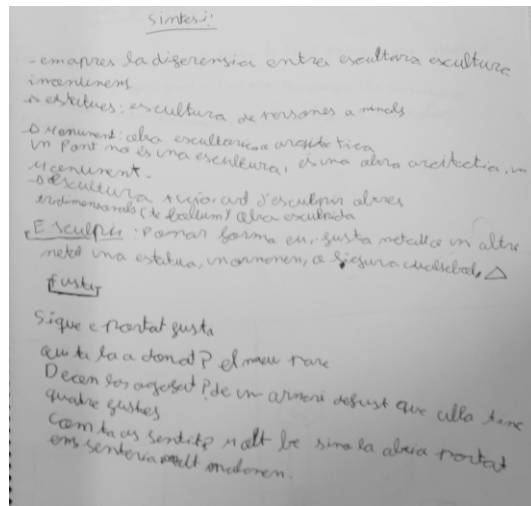 Sintesi:
- em apres la digerensia entre escultara escultura
i monument
→ estatues: escultura de persones a nimals
→ Monument: obra escultorica o arqitectica
un Pont no és una escultura, és una obra arcitectia, un
Monument.
→ Escultura d'esculpir obres
tridimensionals (te bollum) obra esculpida
Esculpir: Donar forma en, gusta metall o un altre
metal una estatua, un monument, o figura cualsebol,
fusta
Sique e portat gusta
qui ta la a donat? el meu pare
De on los agafat? de un armari de fust que alla tinc
quatre gustes
Com ta as sentit? Molt be sino la abria portat
em senteria molt